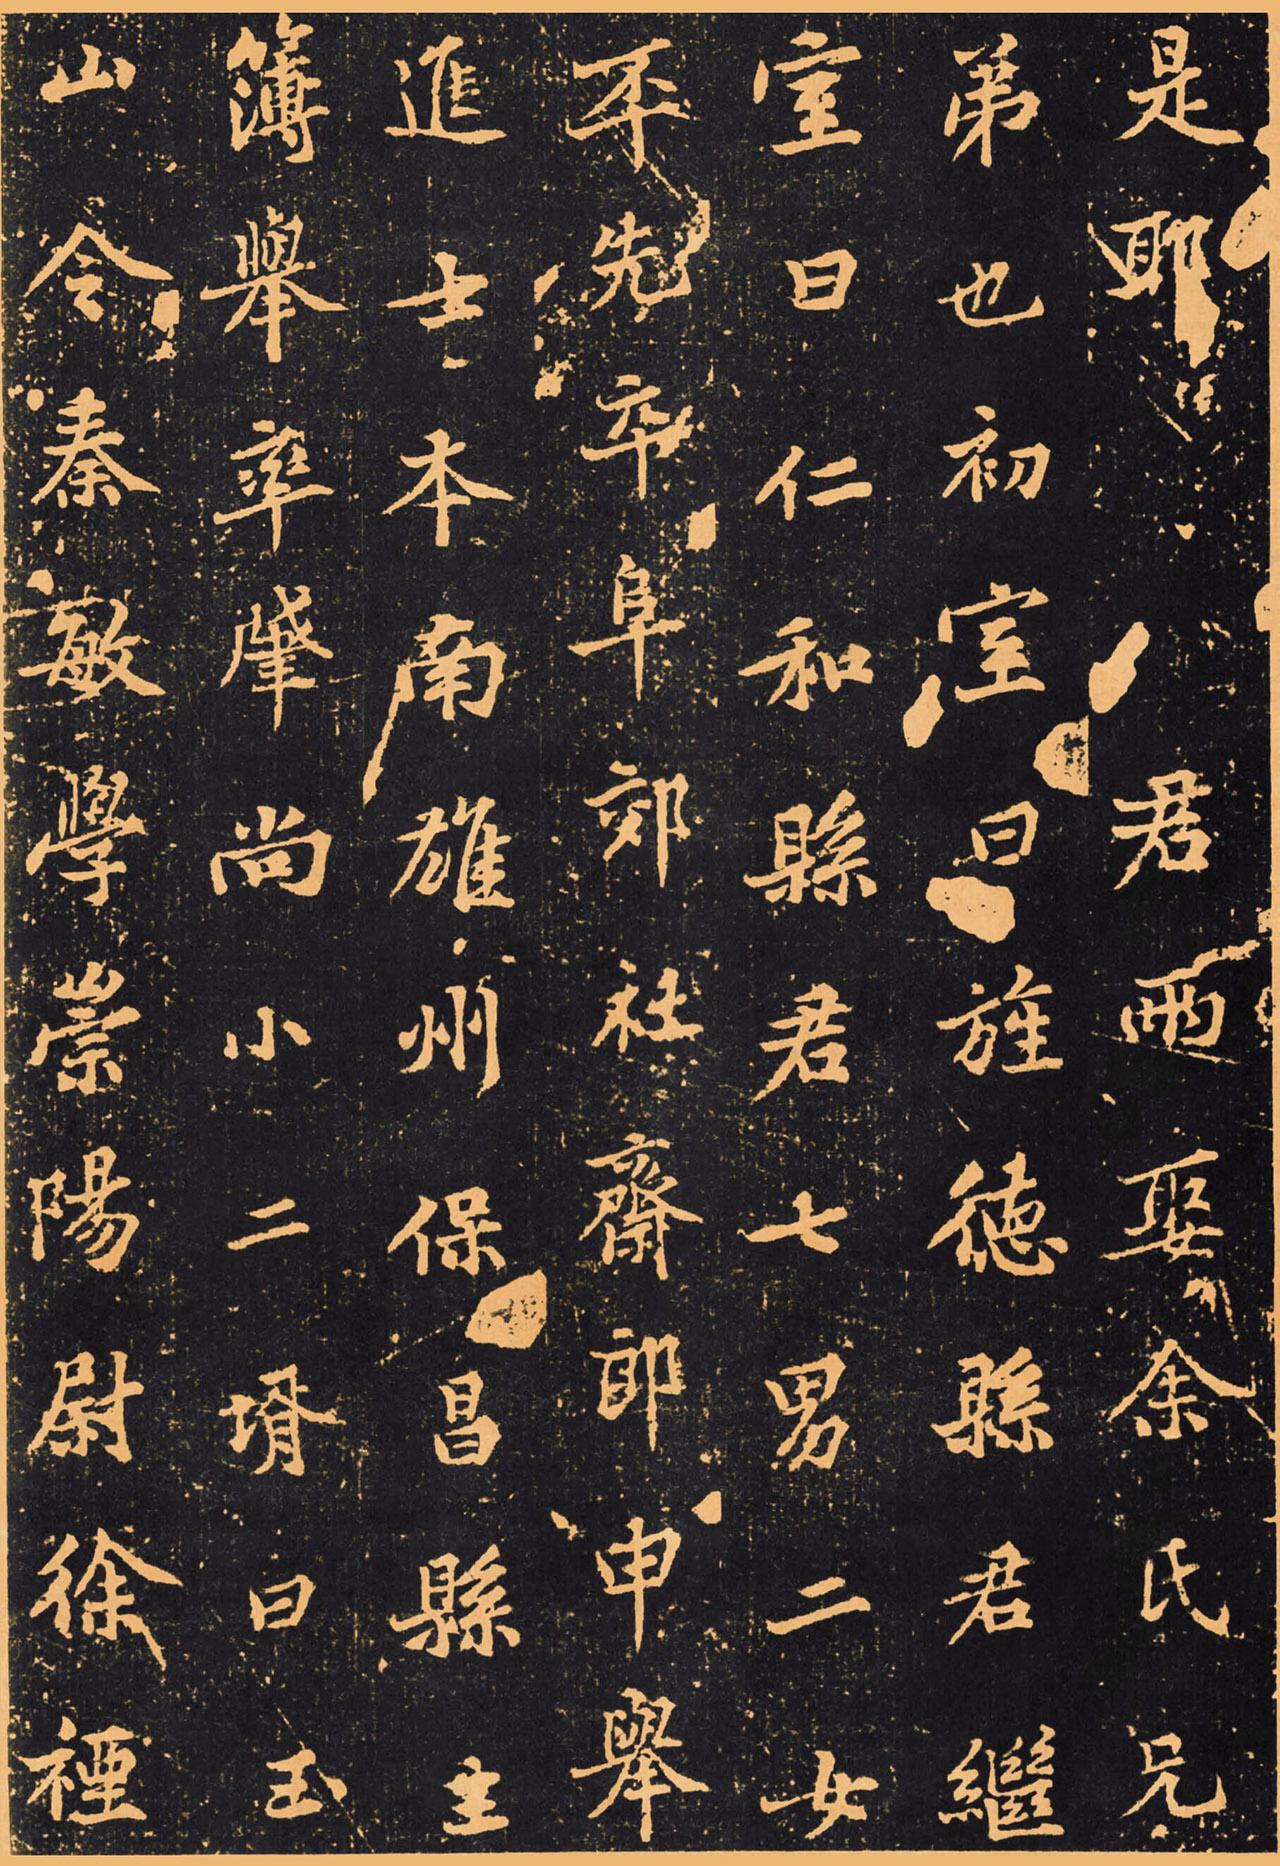 是耶君两娶余氏兄
弟也初室曰旌德縣君繼
室曰仁和縣君七男二女
丕先卒阜郊社齋郎申舉
進士本南雄州保昌縣主
簿舉率肇尚小二壻曰玉
山令秦敏學崇陽尉徐禋